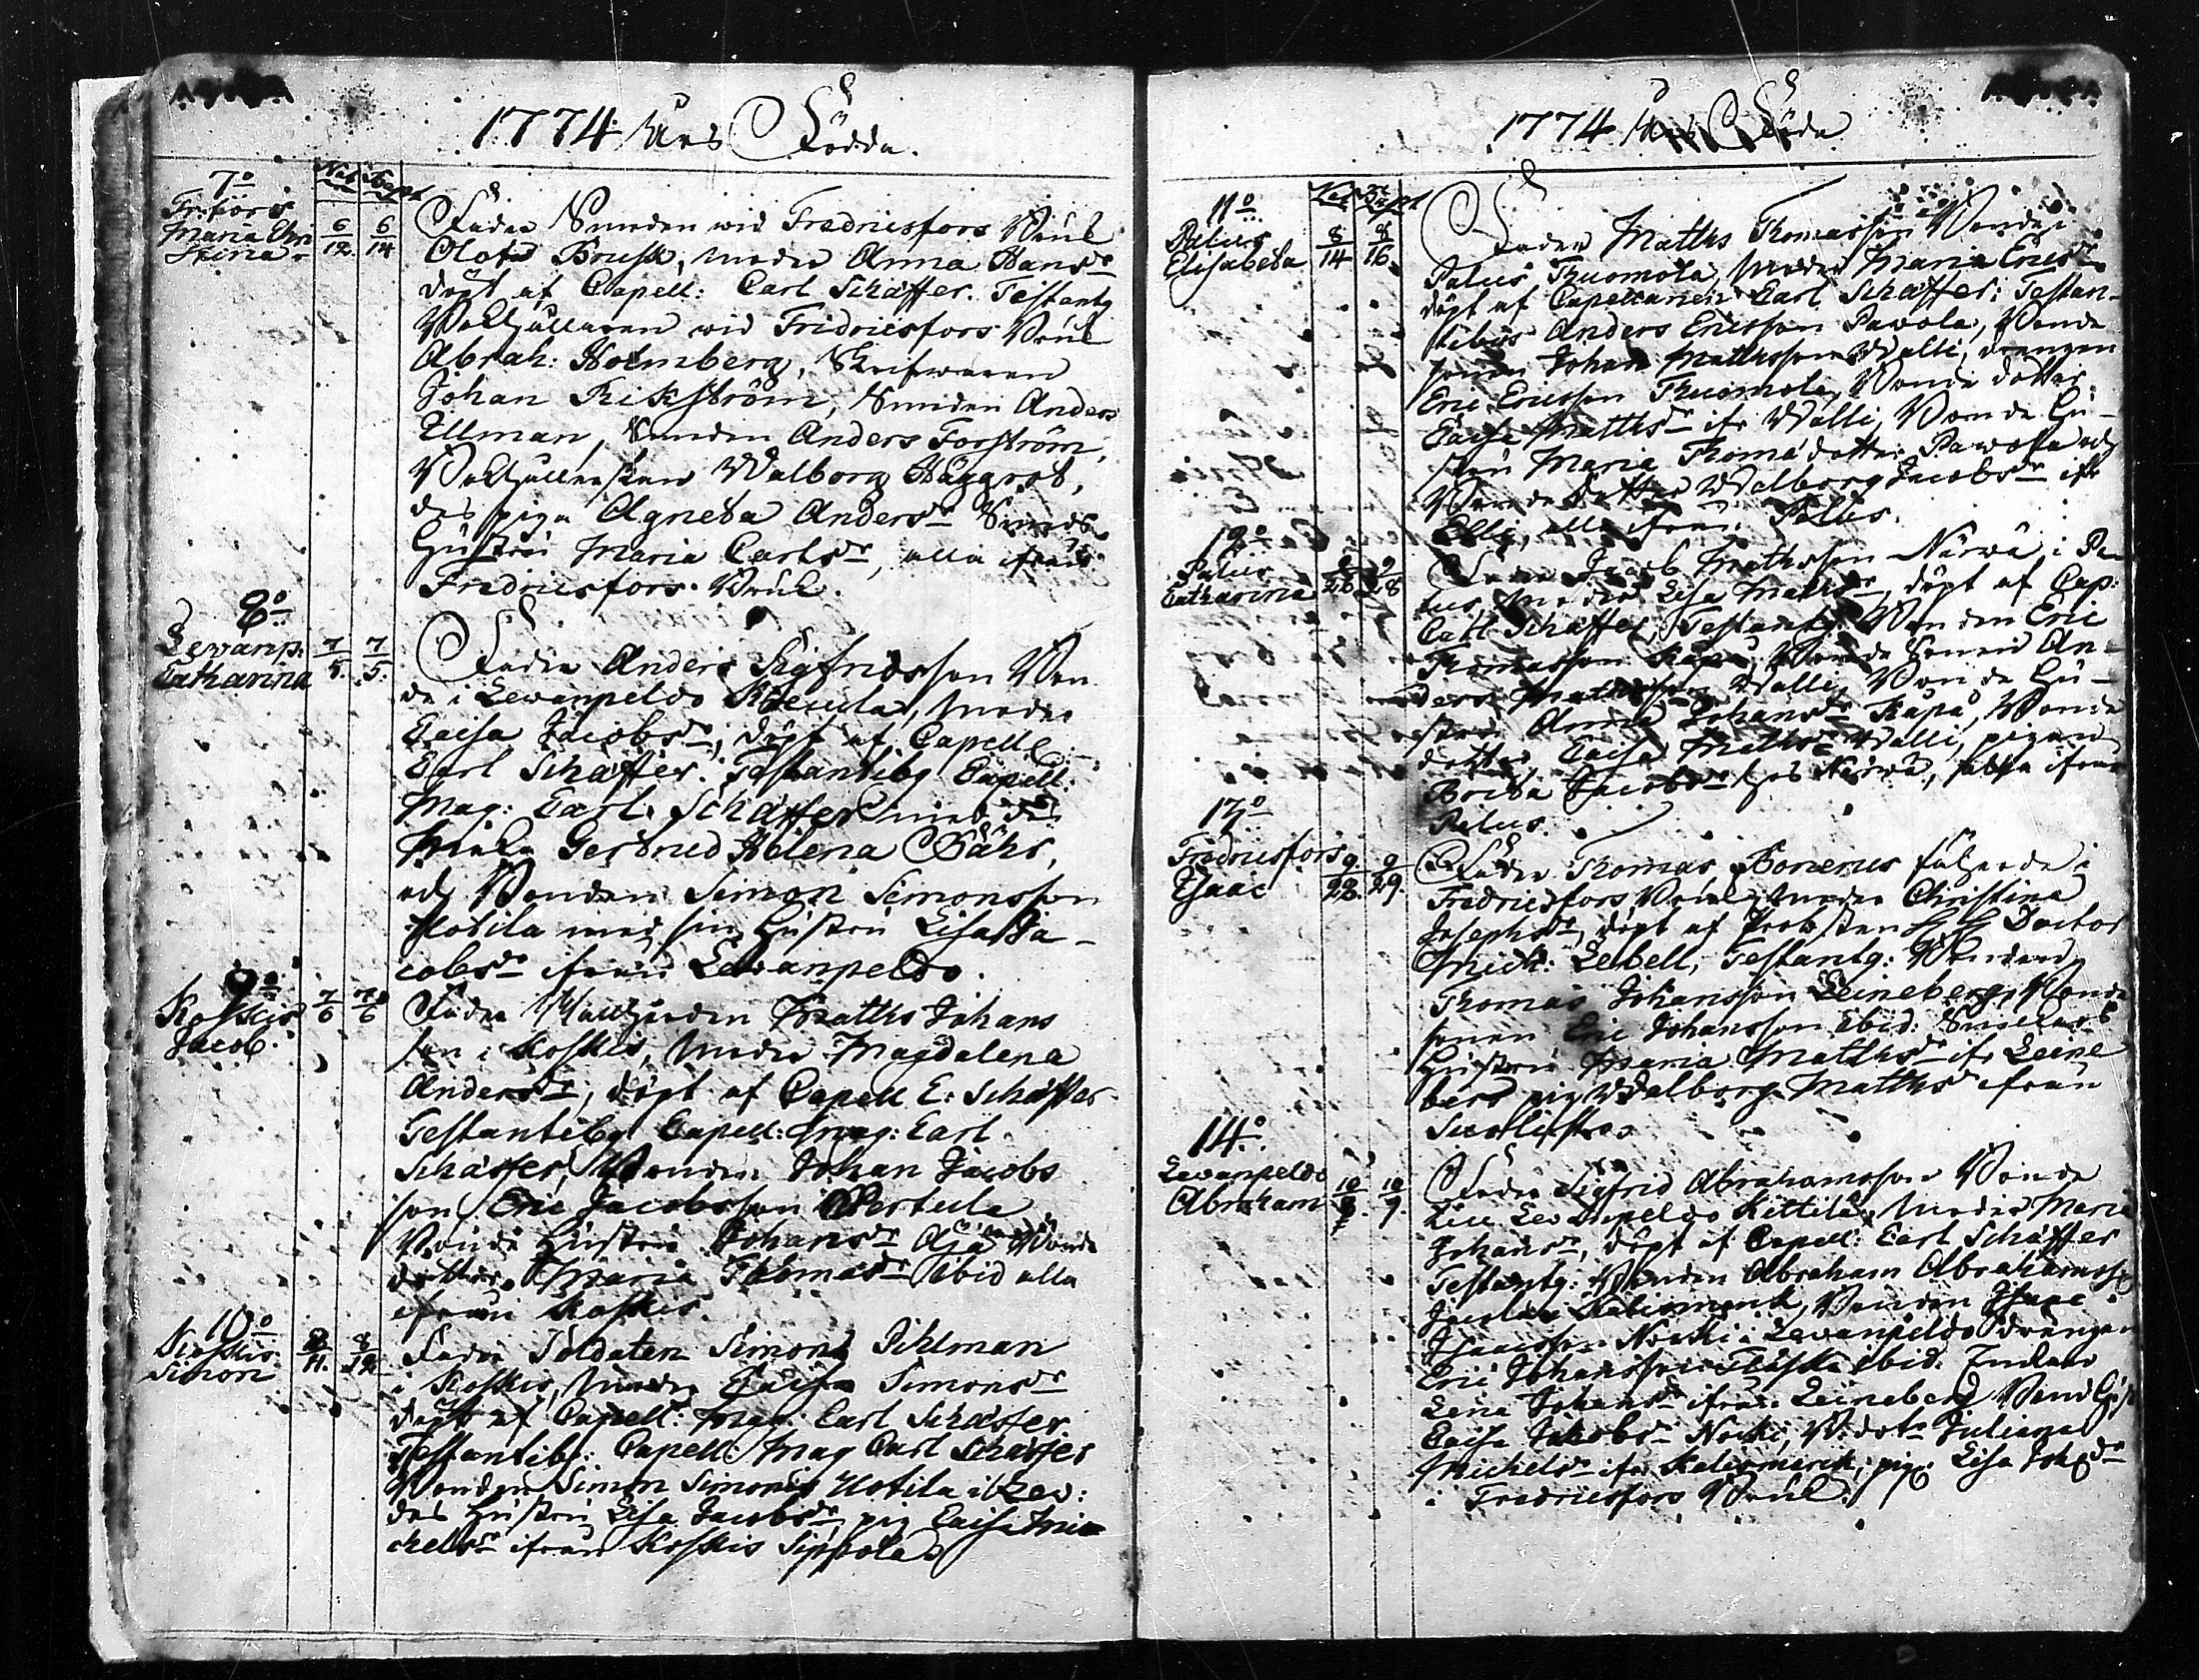 1774 Års Födda.
Nat. Bapt.
7o
Fr:fors
Maria Chri
stina
6/12. 6/14
Fader Smeden wid Fredricsfors Bruk
Olof Brusk, Moder Anna Hansdr
döpt af Capell: Carl Schæffer. Testantg
Abrah: Holmberg,
Johan Rikström, Smeden Anders
Ullman, Smeden Anders Forström,
Walborg Häggrot,
des piga Agneta Andersdr Smeds
Hustru Maria Carlsdr, alla ifrån
Fredricsfors Bruk.
8o
Lewanp.
Catharina
7/5. 7/5.
Fader Anders Sigfridsson Bon
de i Lewanpeldo, Moder
Caisa Jacobsdr, döpt af Capell:
Carl Schæffer. Testantibg Capell:
Mag: Carl Schæffer med des
Gertrud Helena
och Bonden Simon Simonsson
Hotila med sin Hustru Lisa Ja-
cobsdr ifrån Lewanpeldo.
9o
Koskis
Jacob.
7/6 7/6
Fader Matths Johans
son i Koskis, Moder Magdalena
Andersdr, döpt af Capell C: Schæffer
Testantibg Capell: Mag: Carl
Schæffer, Bonden Johan Jacobs
son Eric Jacobsson Pertula
Bonde Hustru Johansdr Bonde
dotter Maria Thomasdr ibid alla
ifrån Koskis.
10o
Koskis
Simon
8/11. 8/12
Fader Soldaten Simon Pihlman
i Koskis, Moder Caisa Simonsdr
döpt af Capell: Mag: Carl Schæffer
Testantibg: Capell: Mag Carl Schæffer
Bonden Simon Simonss Hotila i Lew:
des Hustru Lisa Jacobsdr, pig Caisa Mi
chelsdr ifrån Koskis Sippola
1774 Års Födda
Nat. Bapt
11o
Palus
Elisabeta
8/14 8/16
Fader Matths Thomasson Bonde i
Palus Thuomola, Moder Maria Ericsdr
döpt af Capellanen Carl Schæffer; Testan-
tibus Anders Ericsson Pawola, Bonde
sonen Johan Mattsson Walli, drengen
Eric Ericsson Thuomola, Bonde dotter
Caisa Matthsdr ifr Walli, Bonde Hu-
stru Maria Thomædotter Pawola och
Bonde dotter Walborg Jacobsdr ifr
Elli, alla ifrån Palus.
12o
Palus
Catharina
28
Fader Jacob Mathsson Närwä i Pa-
lus, Moder Lisa Mattsdr, döpt af Cap:
Carl Schæffer, Testantg: Bonden Eric
Thomasson Bonde Sonen An-
ders Mattsson Walli, Bonde Hu-
stru Anna Johansdr Bonde
dotter Caisa Mathsdr Walli, pigan
Brita Jacobsdr hos Närwä, alla ifrån
Palus.
13o
Fredricsfors
Isaac
9/22. 9/29.
Fader Thomas i
Fredricsfors Bruk, Moder Christina
Josephsdr, döpt af Probsten Doctor
Mich: Lebell, Testantg: Bonden
Thomas Johansson Leineberg, Bonde
sonen Eric Johansson ibid:
Hustru Maria Matthsdr ifr Leine
berg pig Walborg Matthsdr ifrån
14o
Lewanpeldo
Abraham
10/9. 10/9.
Fader Sigfrid Abrahamsson Bonde
Lewanpeldo Kittilä, Moder Maria
Johansdr, döpt af Capell: Carl Schæffer
Testantg: Bonden Abraham Abrahamss
Kaliomenk, Bonden Isaac
Isaacsson Norki i Lewanpeldo drengen
Eric Johansson ibid.
Lena Johansdr ifrån Leineberg
Caisa Jacobsdr Norki, Juliana
Michelsdr ifr Kaliomenk, pig: Lisa Johdr
i Fredricsfors Bruk.